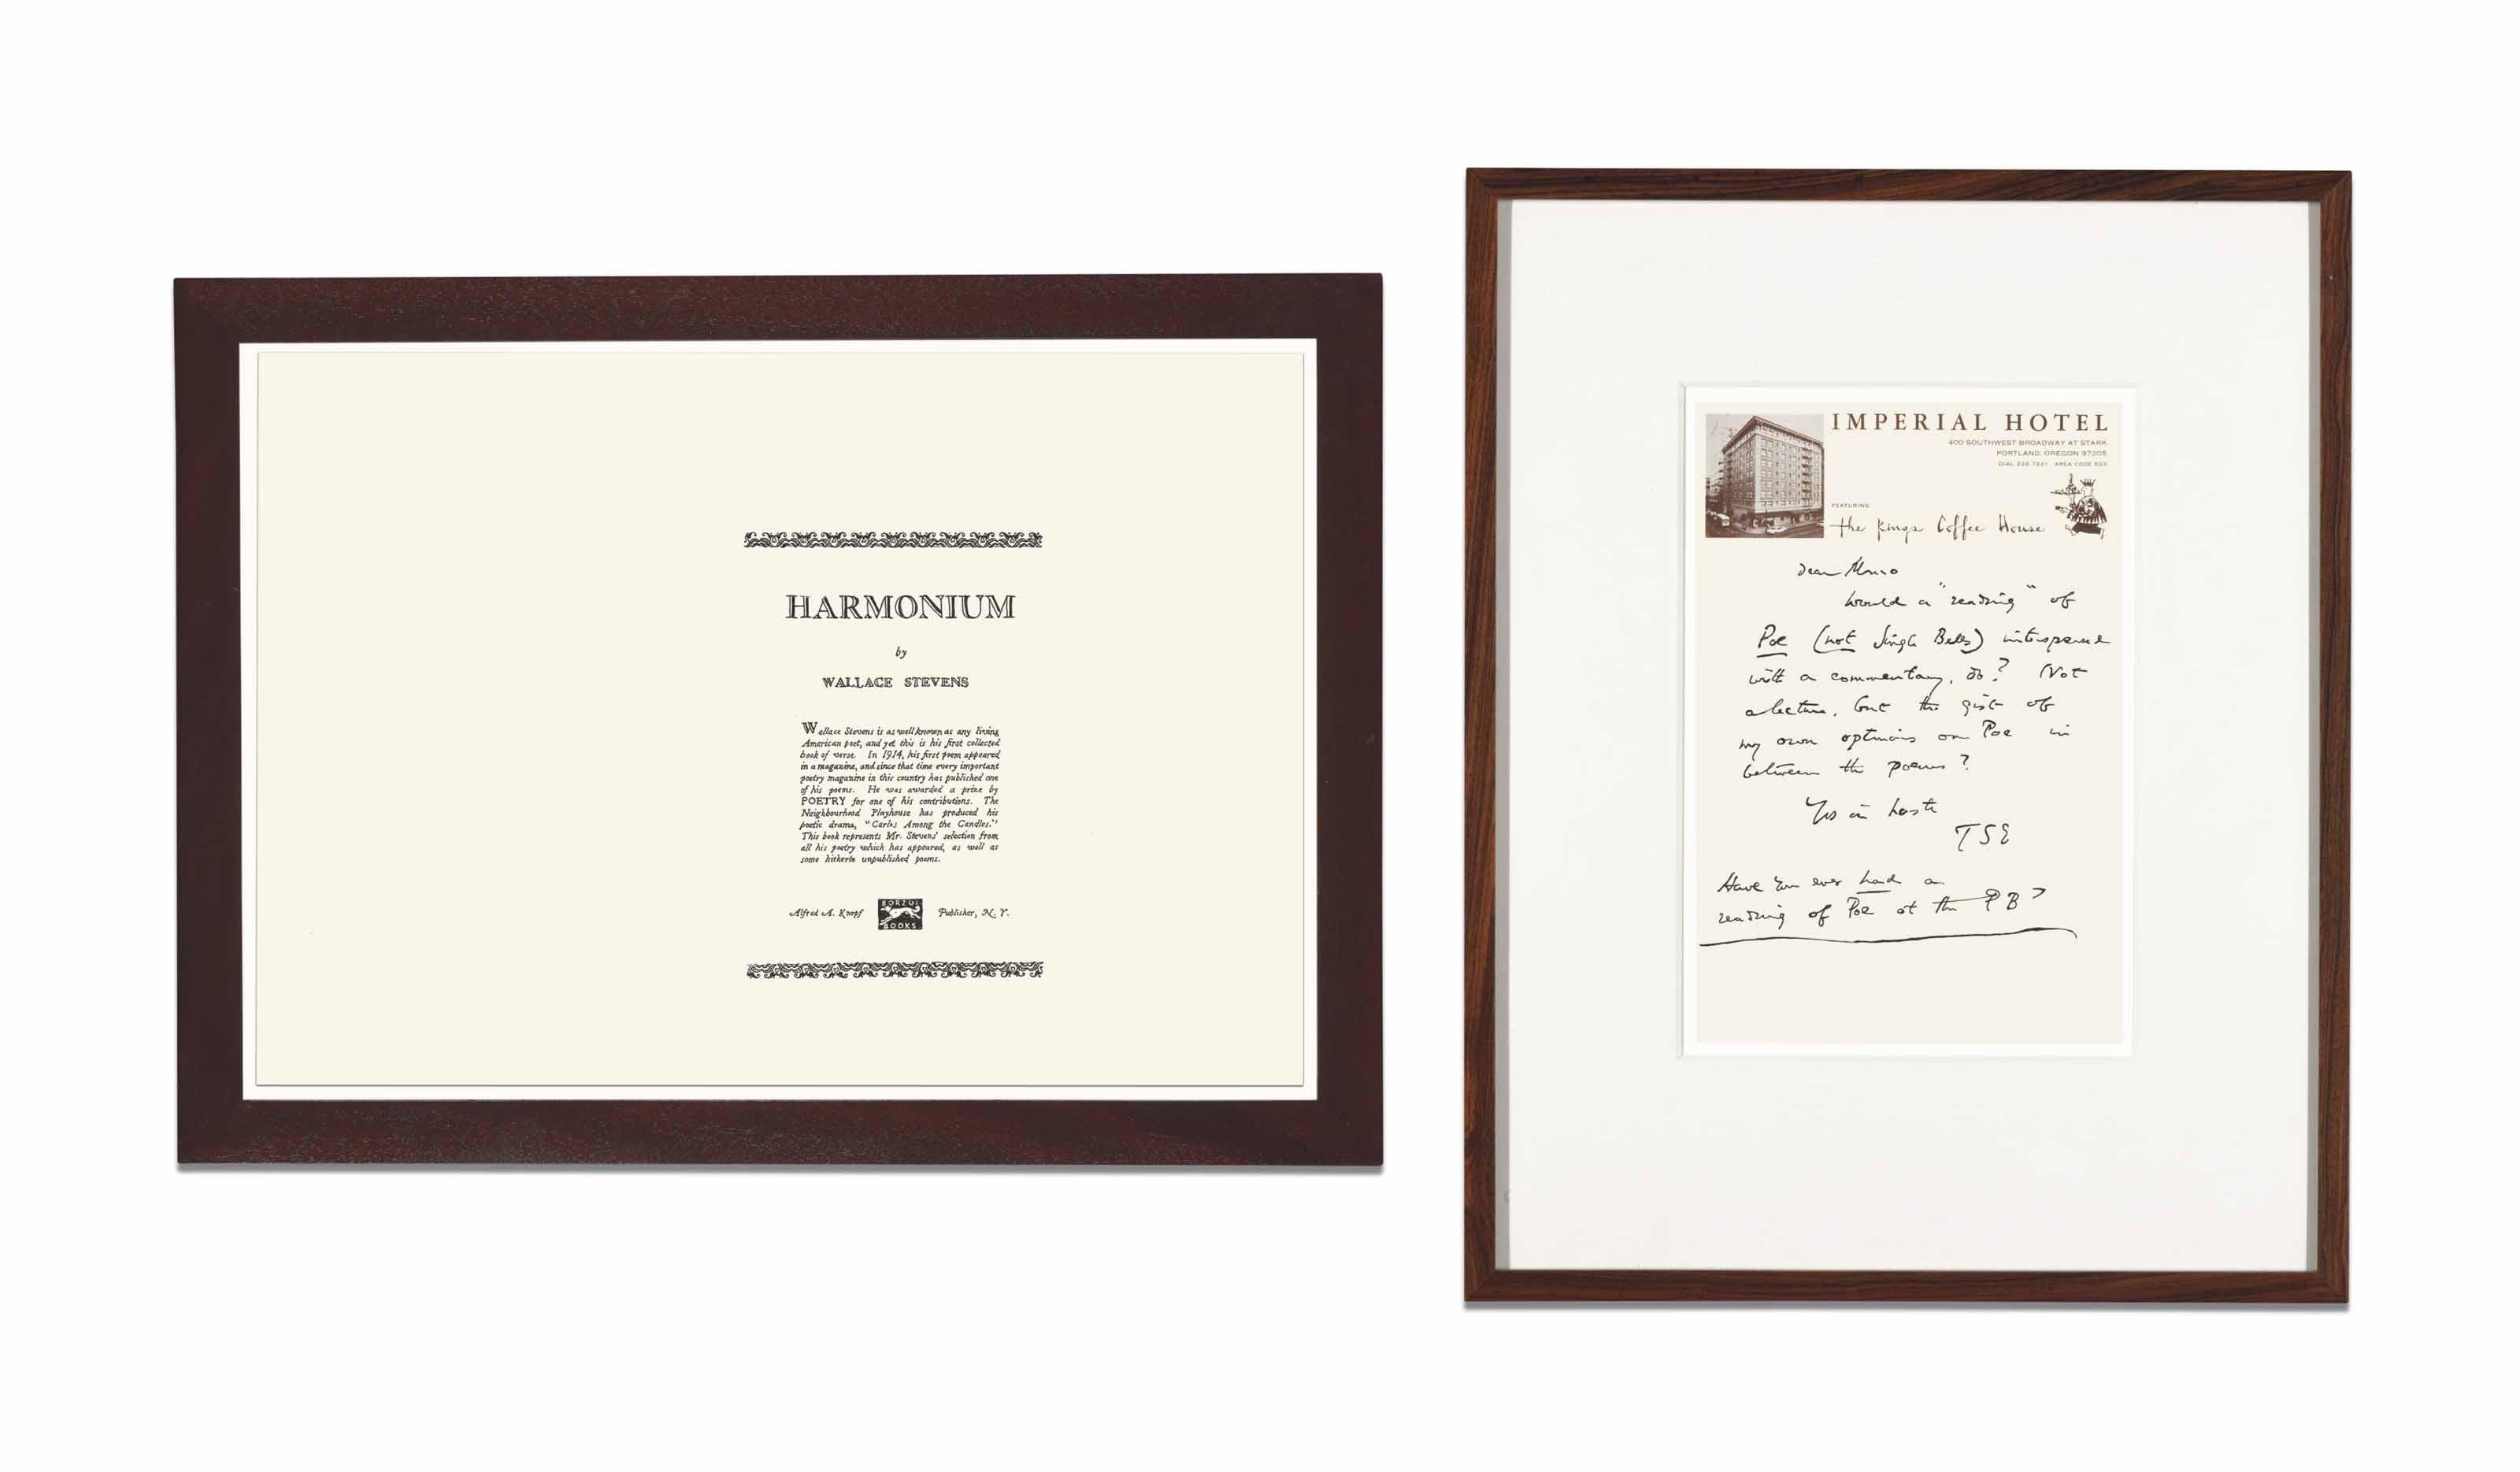 HARMONIUM
by
WALLACE STEVENS
Wallace Stevens is as well known as any living
American poet, and yet this is his first collected
book of verse. In 1914, his first poem appeared
in a magazine, and since that time every important
poetry magazine in this country has published one
of his poems. He was awarded a prize by
POETRY for one of his contributions. The
Neighbourhood Playhouse has produced his
poetic drama, "Carlos Among the Candles."
This book represents Mr. Stevens' selection from
all his poetry which has appeared, as well as
some hitherto unpublished poems.
Alfred A. Knopf
BORZOI
BOOKS
Publisher, N. Y.
IMPERIAL HOTEL
400 SOUTHWEST BROADWAY AT STARK
PORTLAND, OREGON 97205
DIAL 228-7221 AREA CODE 503
FEATURING
the Kings Coffee House
Dear Monro
Would a "reading" of
Poe (not Jingle Bells) interspersed
with a commentary, do? (Not
a lecture, but the gist of
my own opinions on Poe in
between the poems?
Yrs in haste
TSE
Have you ever had a
reading of Poe at the PB?